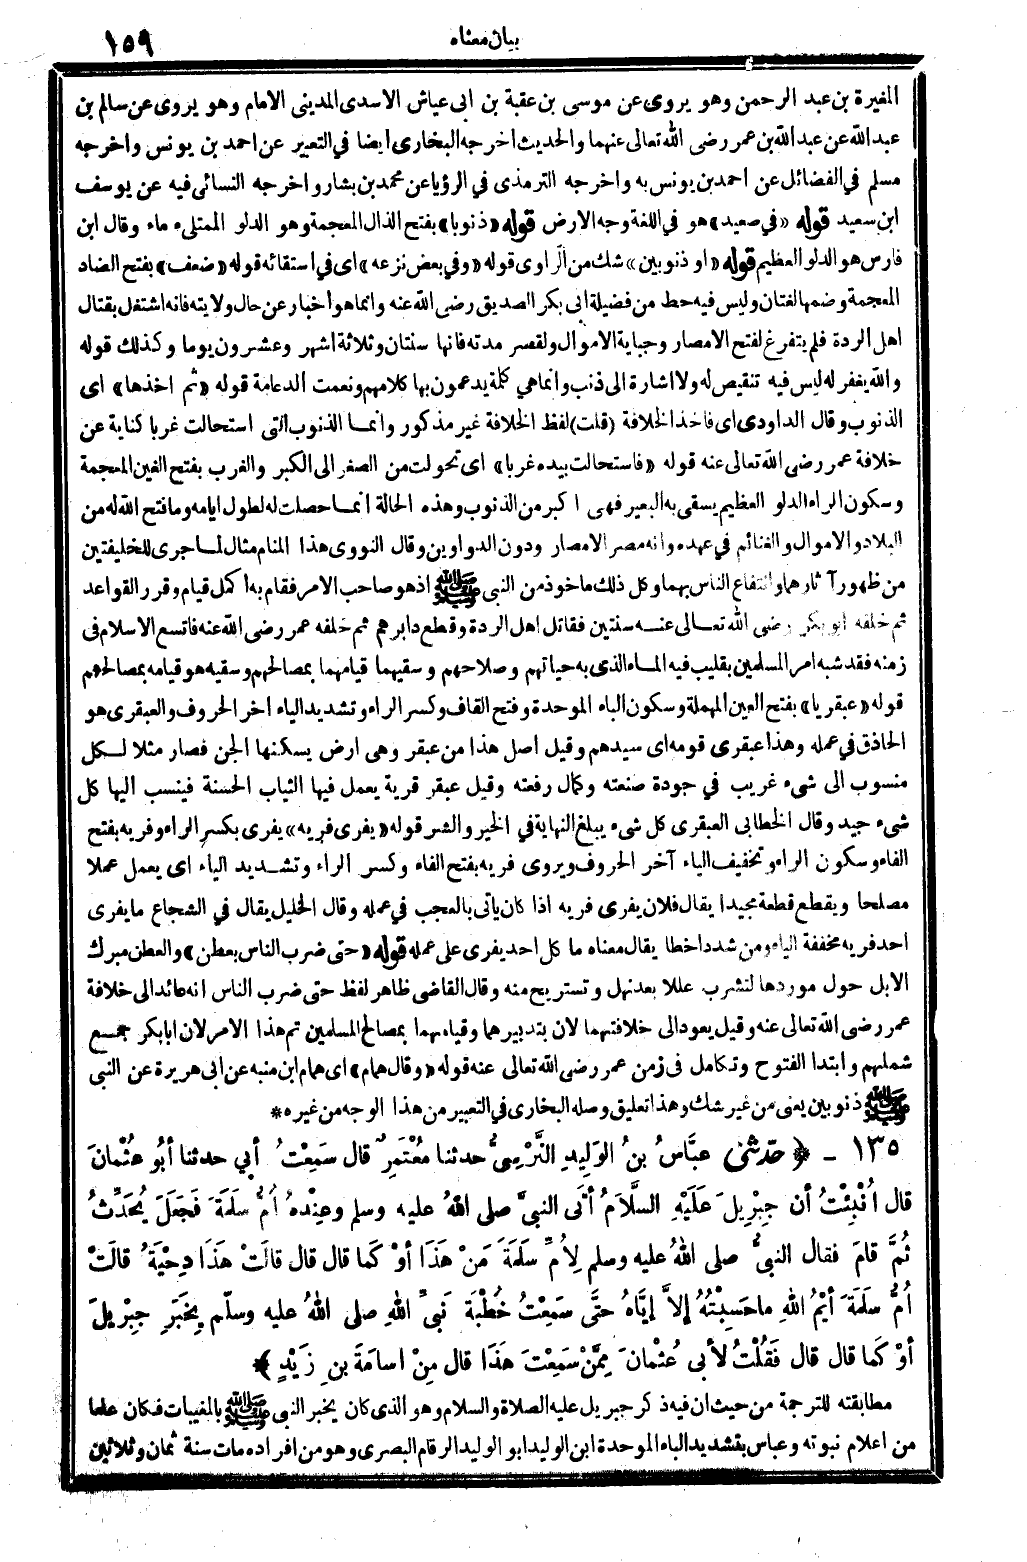 بيان معناه
١٥٩
المغيرة بن عبد الرحمن وهو يروى عن موسى بن عقبة بن ابى عياش الاسدى المدينى الامام وهو يروى عن سالم بن
عبدالله عن عبدالله بن عمر رضى الله تعالى عنهما والحديث اخرجه البخارى ايضا في التعبير عن احمد بن يونس واخرجه
مسلم في الفضائل عن احمد بن يونس به واخرجه الترمذى في الرؤيا عن محمد بن بشار واخرجه النسائى فيه عن يوسف
ابن سعيد قوله «في صعيد» هو في اللغة وجه الارض قوله «ذنوبا» بفتح الذال المعجمة وهو الدلو الممتلىء ماء وقال ابن
فارس هو الدلو العظيم قوله «او ذنوبين» شك من الراوى قوله «وفي بعض نزعه» اى في استقائه قوله «ضعف» بفتح الضاد
المعجمة وضمها لغتان وليس فيه حط من فضيلة ابى بكر الصديق رضى الله عنه وانما هو اخبار عن حال ولايته فانه اشتغل بقتال
اهل الردة فلم يتفرغ لفتح الامصار وجباية الاموال ولقصر مدته فانها سنتان وثلاثة اشهر وعشرون يوما وكذلك قوله
والله يغفر له ليس فيه تنقيص له ولا اشارة الى ذنب وانما هي كلمة يدعمون بها كلامهم ونعمت الدعامة قوله «ثم اخذها» اى
الذنوب وقال الداودى اى فاخذ الخلافة (قلت) لفظ الخلافة غير مذكور وانما الذنوب التى استحالت غربا كناية عن
خلافة عمر رضى الله تعالى عنه قوله «فاستحالت بيده غربا» اى تحولت من الصغر الى الكبر والغرب بفتح الغين المعجمة
وسكون الراء الدلو العظيم يسقى به البعير فهى اكبر من الذنوب وهذه الحالة انما حصلت له لطول ايامه وما فتح الله له من
البلاد والاموال والغنائم في عهده وانه مصر الامصار ودون الدواوين وقال النووى هذا المنام مثال لما جرى للخليفتين
من ظهور آثارهما وانتفاع الناس بهما وكل ذلك ماخوذ من النبى ﷺ اذ هو صاحب الامر فقام به اكمل قيام وقرر القواعد
ثم خلفه ابو بكر رضى الله تعالى عنه سنتين فقاتل اهل الردة وقطع دابرهم ثم خلفه عمر رضى الله عنه فاتسع الاسلام فى
زمنه فقد شبه امر المسلمين بقليب فيه الماء الذى به حياتهم وصلاحهم وسقيهما قيامهما بمصالحهم وسقيه هو قيامه بمصالحهم
قوله «عبقريا» بفتح العين المهملة وسكون الباء الموحدة وفتح القاف وكسر الراء وتشديد الياء اخر الحروف والعبقرى هو
الحاذق في عمله وهذا عبقرى قومه اى سيدهم وقيل اصل هذا من عبقر وهى ارض يسكنها الجن فصار مثلا لكل
منسوب الى شىء غريب في جودة صنعته وكمال رفعته وقيل عبقر قرية يعمل فيها الثياب الحسنة فينسب اليها كل
شىء جيد وقال الخطابى العبقرى كل شىء يبلغ النهاية في الخير والشر قوله «يفرى فريه» يفرى بكسر الراء وفريه بفتح
الفاء وسكون الراء وتخفيف الياء آخر الحروف ويروى فريه بفتح الفاء وكسر الراء وتشديد الياء اى يعمل عملا
مصلحا ويقطع قطعة مجيدا يقال فلان يفرى فريه اذا كان ياتى بالعجب في عمله وقال الخليل يقال في الشجاع ما يفرى
احد فريه مخففة الياء ومن شدد اخطا يقال معناه ما كل احد يفرى على عمله قوله «حتى ضرب الناس بعطن» والعطن مبرك
الابل حول موردها لتشرب عللا بعد نهل وتستريح منه وقال القاضى ظاهر لفظ حتى ضرب الناس انه عائد الى خلافة
عمر رضى الله تعالى عنه وقيل يعود الى خلافتهما لان بتدبيرهما وقيامهما بمصالح المسلمين تم هذا الامر لان ابابكر جمع
شملهم وابتدا الفتوح وتكامل فى زمن عمر رضى الله تعالى عنه قوله «وقال همام» اى همام ابن منبه عن ابى هريرة عن النبى
ﷺ ذنوبين يعنى من غير شك وهذا تعليق وصله البخارى في التعبير من هذا الوجه من غيره *
١٣٥ - ﴿ حدثنى عبَّاسُ بنُ الوَلِيدِ النَّرْسِىُّ حدثنا مُعْتَمِرٌ قال سَمِعْتُ أبي حدثنا أبُو عُثْمانَ
قال اُنْبِئْتُ أن جِبْرِيلَ عَلَيْهِ السَّلاَمُ أتَى النبىَّ صلى اللهُ عليه وسلم وعِنْدهُ اُمُّ سلَمَةَ فَجَعَلَ يُحَدِّثُ
ثُمَّ قامَ فقال النبىُّ صلى اللهُ عليه وسلم لِاُمِّ سَلَمَةَ مَنْ هَذَا أوْ كَما قال قال قالَتْ هَذَا دِحْيَةُ قالَتْ
اُمُّ سلَمَةَ أيْمُ اللهِ ما حَسِبْتُهُ إلاَّ إيَّاهُ حتَّى سَمِعْتُ خُطْبَةَ نَبىِّ اللهِ صلى اللهُ عليه وسلّم بِخَبَرِ جِبْرِيلَ
أوْ كَما قال قال فَقُلْتُ لأبى عُثْمانَ مِمَّنْ سَمِعْتَ هَذَا قال مِنْ اسامَةَ بنِ زَيْدٍ ﴾
مطابقته للترجمة من حيث ان فيه ذكر جبريل عليه الصلاة والسلام وهو الذى كان يخبر النبى ﷺ بالمغيبات فكان علما
من اعلام نبوته وعباس بتشديد الباء الموحدة ابن الوليد ابو الوليد الرقام البصرى وهو من افراده مات سنة ثمان وثلاثين